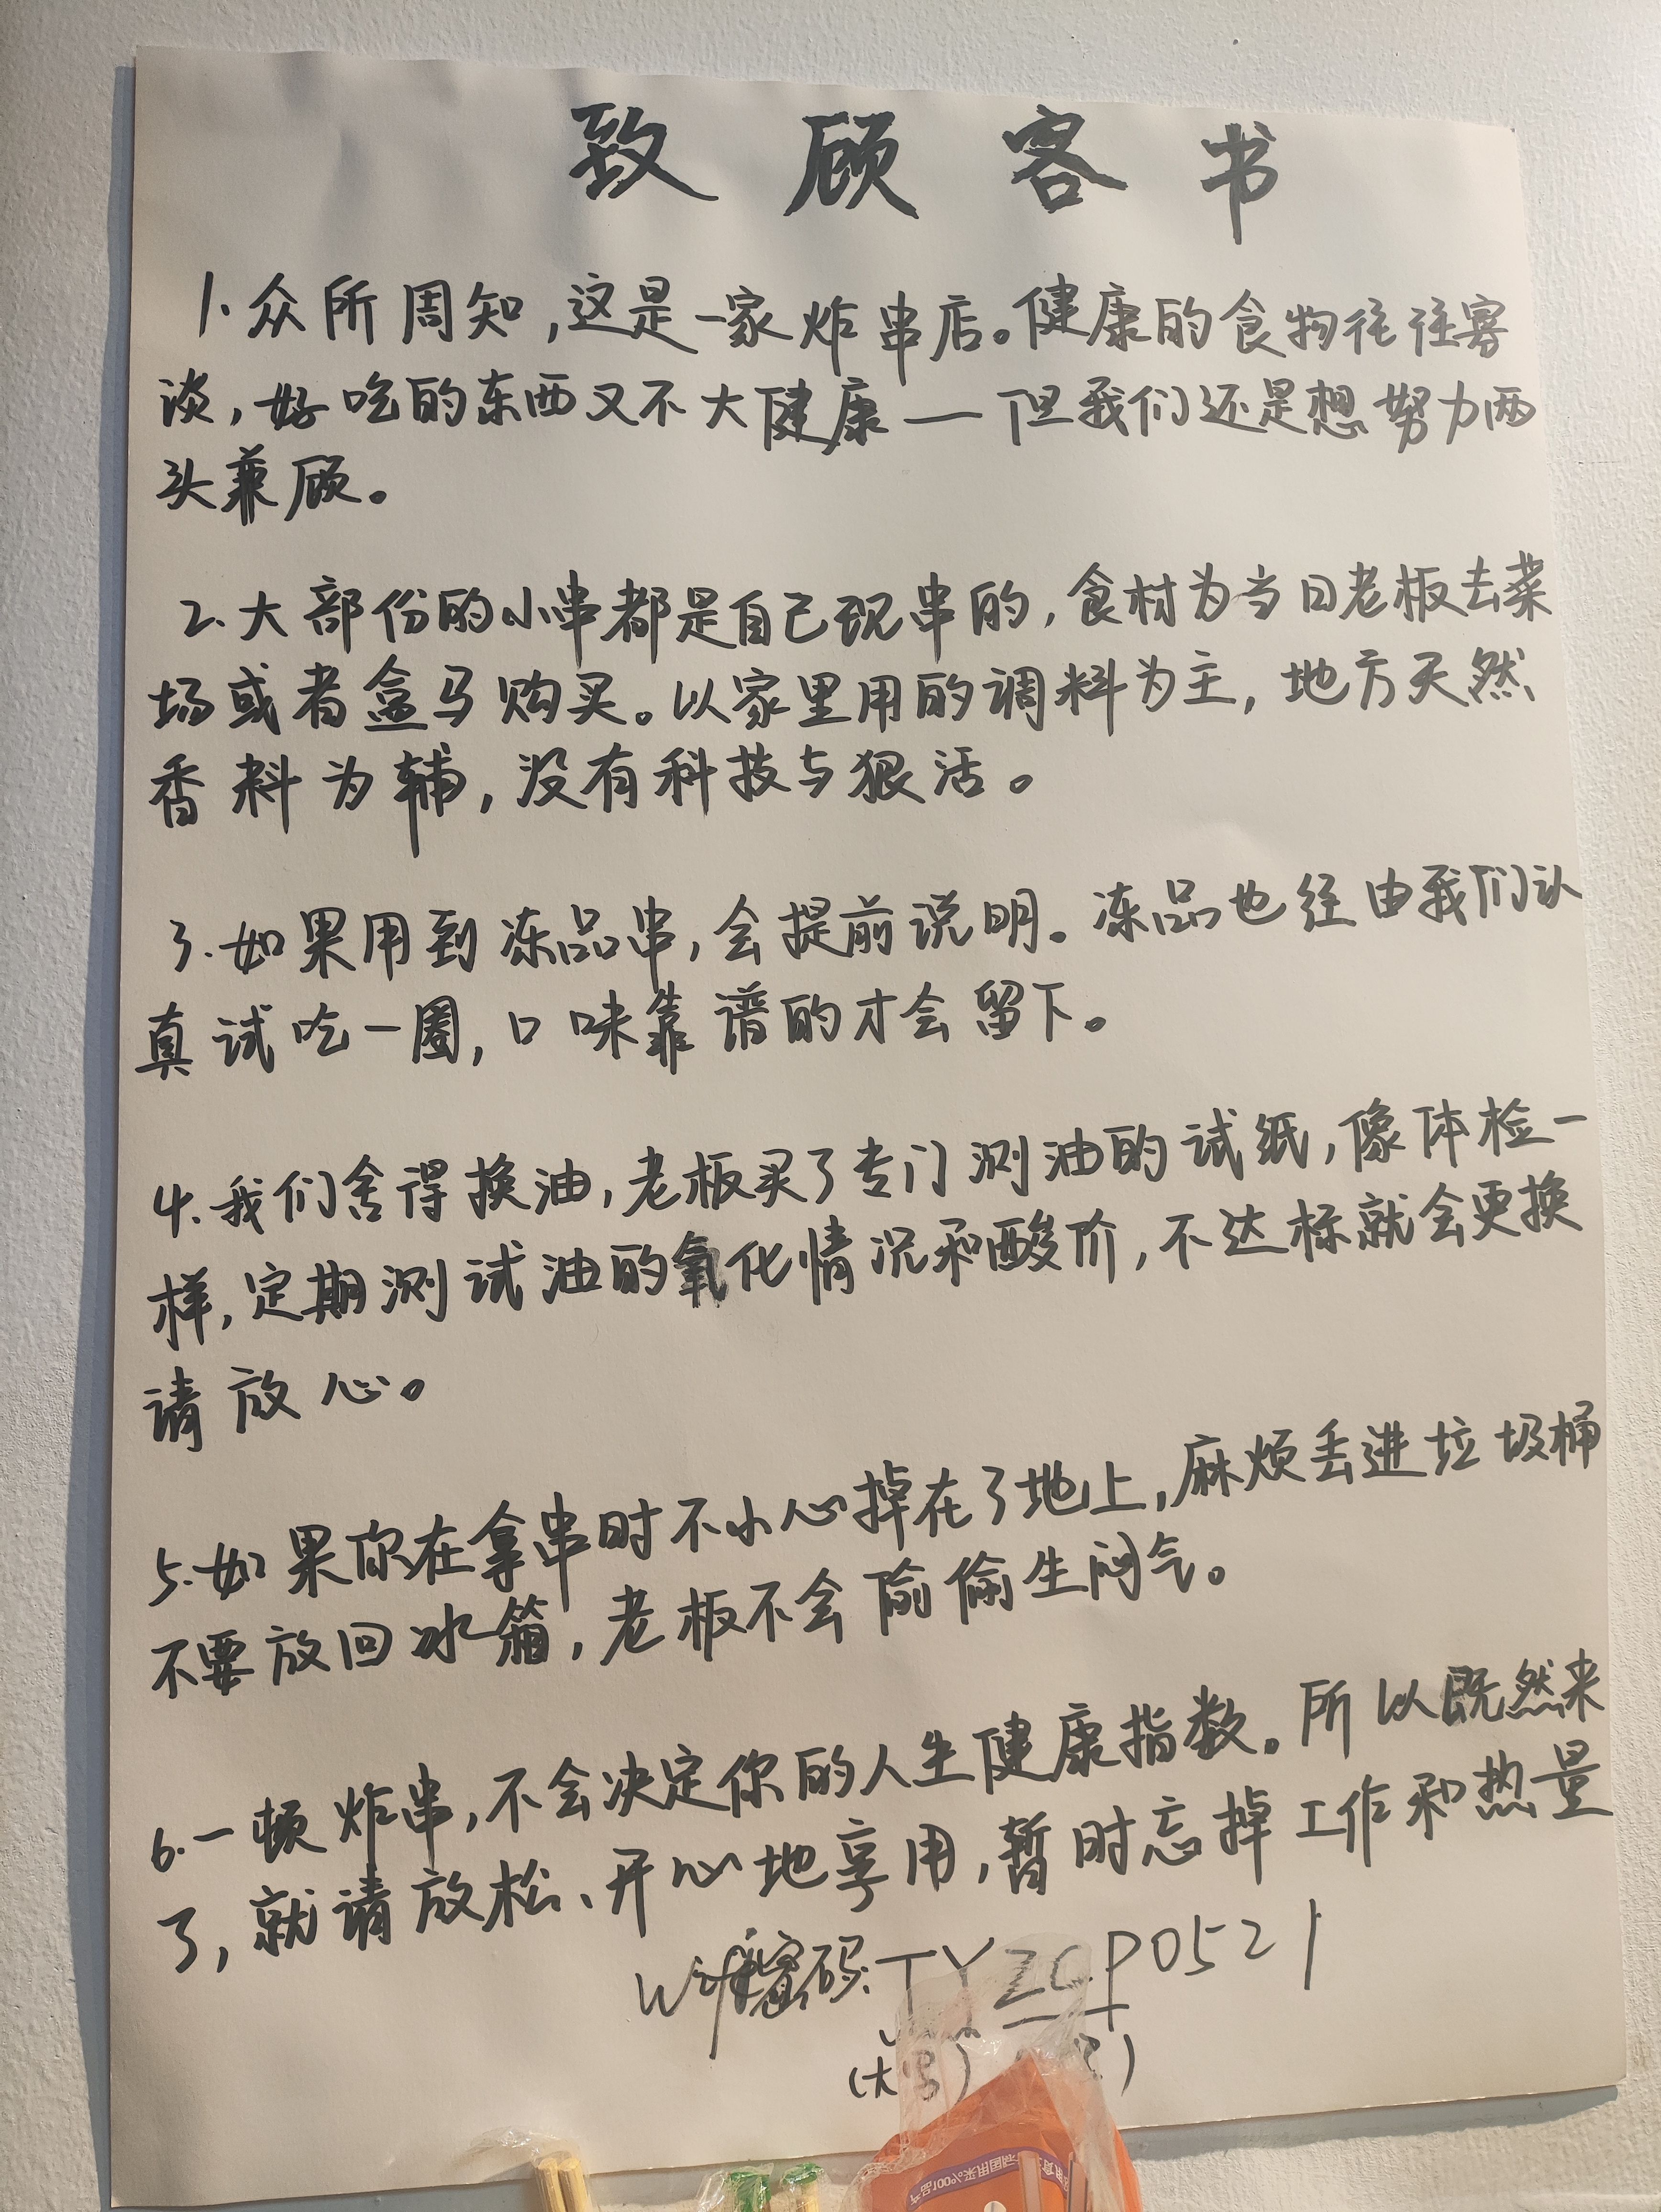 致顾客书
1.众所周知,这是一家炸串店。健康的食物往往寡
谈,好吃的东西又不大健康—但我们还是想努力两
头兼顾。
2.大部份的小串都是自己现串的,食材为当日老板去菜
场或者盒马购买。以家里用的调料为主,地方天然
香料为辅,没有科技与狠活。
3.如果用到冻品串,会提前说明。冻品也经由我们认
真试吃一圈,口味靠谱的才会留下。
4.我们舍得换油,老板买了专门测油的试纸,像体检一
样,定期测试油的氧化情况和酸价,不达标就会更换
请放心。
5.如果你在拿串时不小心掉在了地上,麻烦丢进垃圾桶
不要放回冰箱,老板不会偷偷生闷气。
6.一顿炸串,不会决定你的人生健康指数。所以既然来
了,就请放松、开心地享用,暂时忘掉工作和热量
Wifi密码:TYZCP0521
(大写)